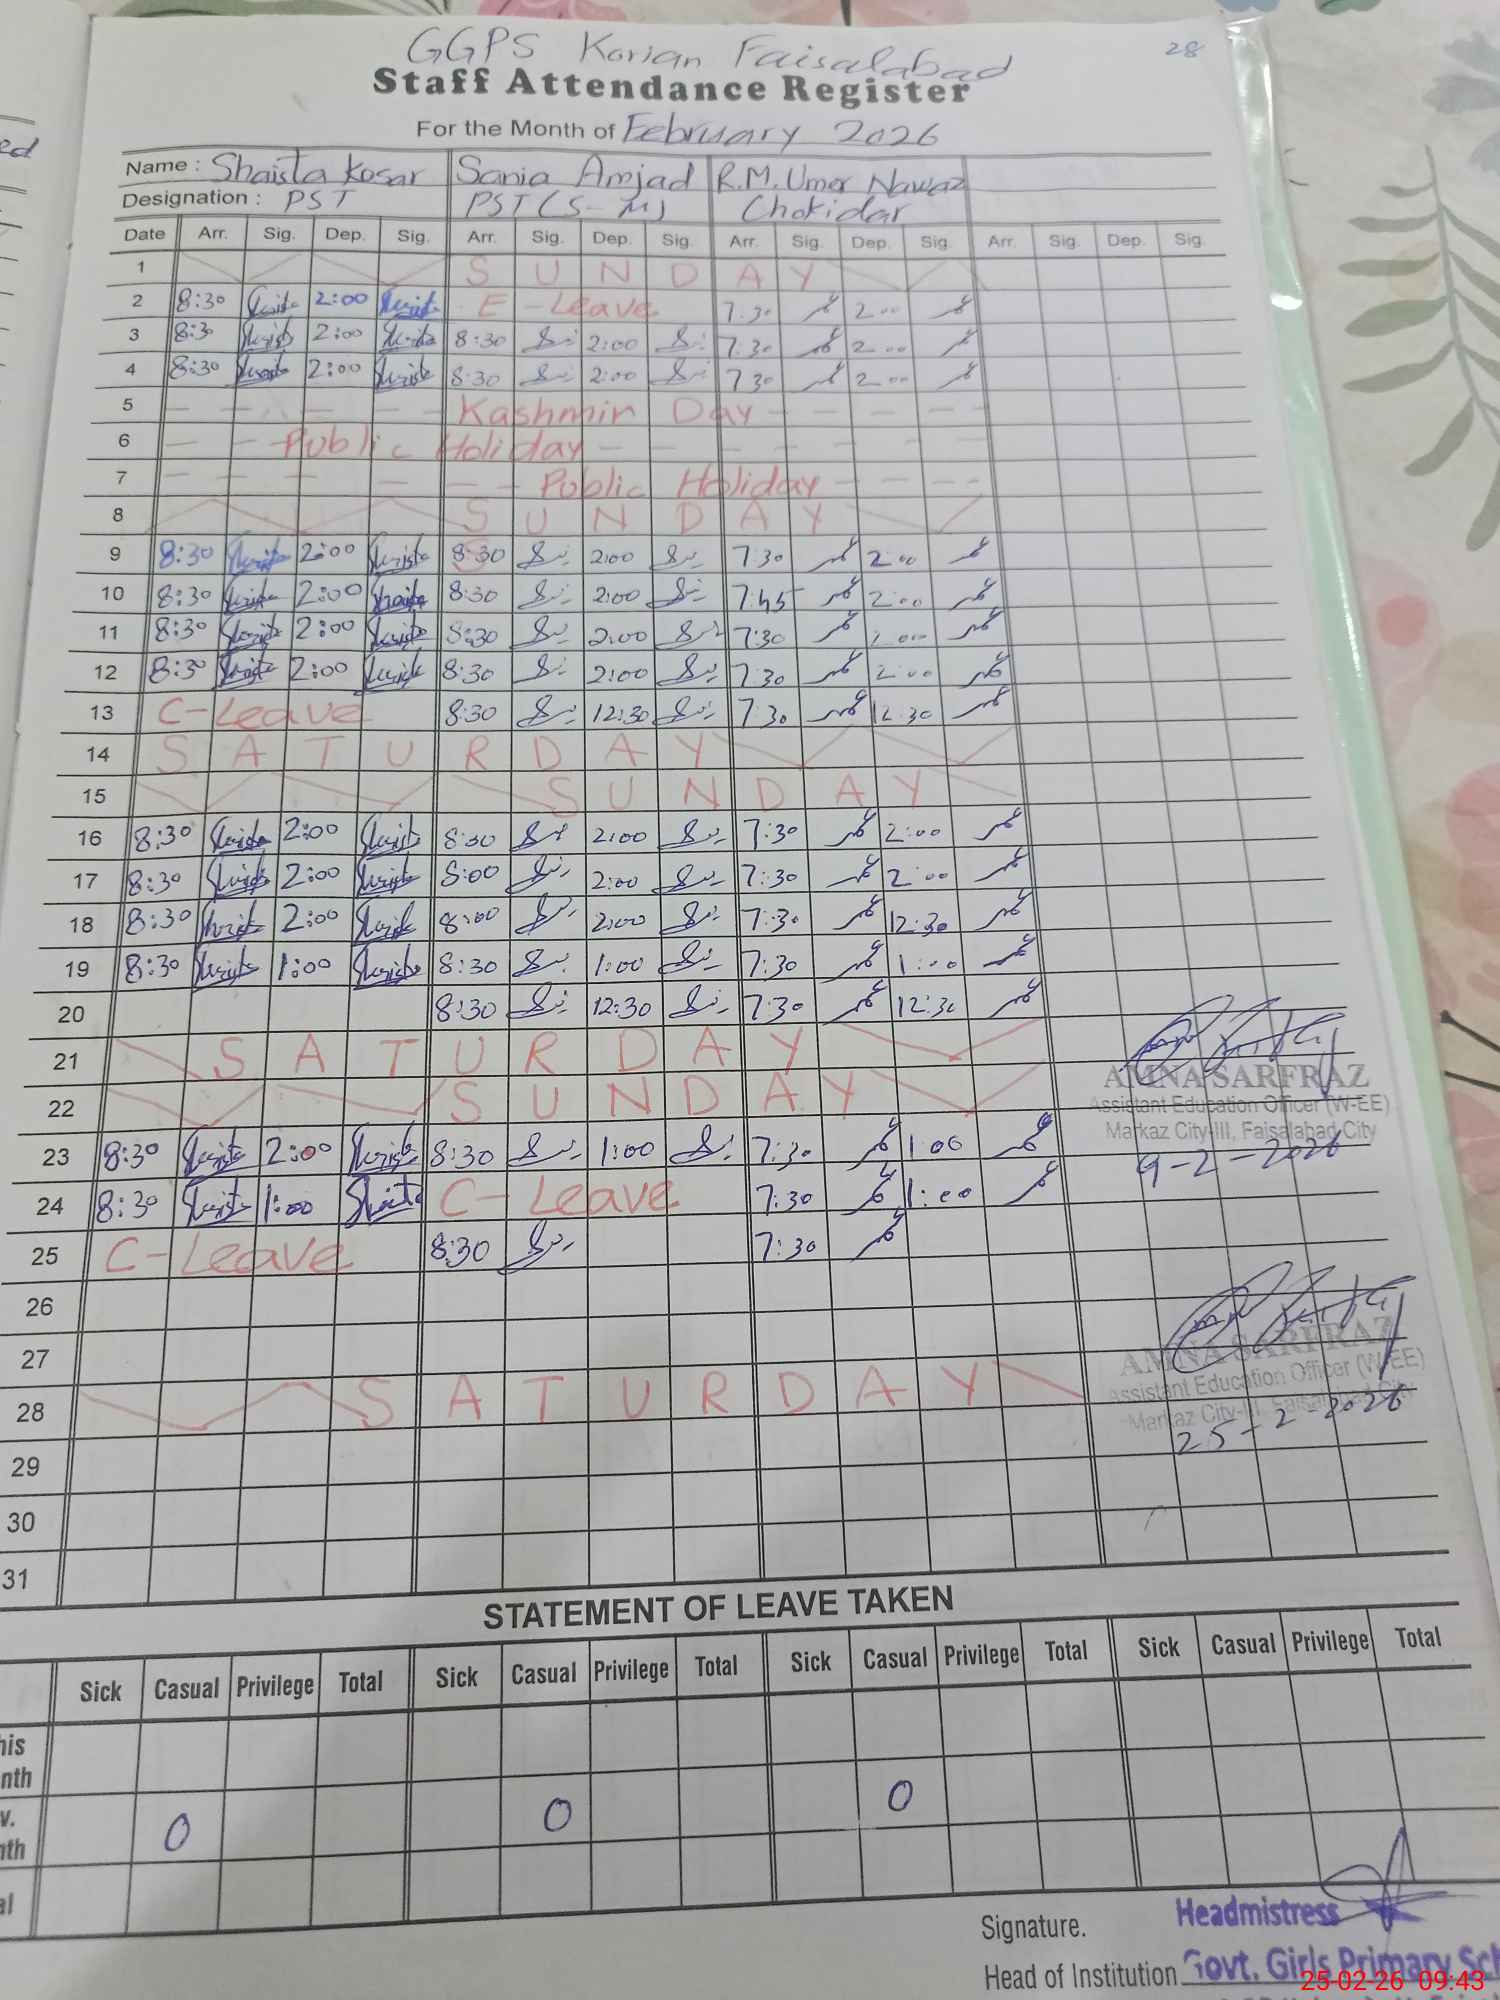 28
GGPS Korian Faisalabad
Staff Attendance Register
For the Month of February 2026
Name : Shaista Kosar Sania Amjad R.M. Umer Nawaz
Designation : PST PST (S-M) Chokidar
Date Arr. Sig. Dep. Sig. Arr. Sig. Dep. Sig. Arr. Sig. Dep. Sig. Arr. Sig. Dep. Sig.
1 SUNDAY
2 8:30 Shaista 2:00 Shaista E-Leave 7:30 عمر 2:00 عمر
3 8:30 Shaista 2:00 Shaista 8:30 2:00 7:30 عمر 2:00 عمر
4 8:30 Shaista 2:00 Shaista 8:30 2:00 7:30 عمر 2:00 عمر
5 Kashmir Day
6 Public Holiday
7 Public Holiday
8 SUNDAY
9 8:30 Shaista 2:00 Shaista 8:30 2:00 7:30 عمر 2:00 عمر
10 8:30 Shaista 2:00 Shaista 8:30 2:00 7:45 عمر 2:00 عمر
11 8:30 Shaista 2:00 Shaista 8:30 2:00 7:30 عمر 2:00 عمر
12 8:30 Shaista 2:00 Shaista 8:30 2:00 7:30 عمر 2:00 عمر
13 C-Leave 8:30 12:30 7:30 عمر 12:30 عمر
14 SATURDAY
15 SUNDAY
16 8:30 Shaista 2:00 Shaista 8:30 2:00 7:30 عمر 2:00 عمر
17 8:30 Shaista 2:00 Shaista 8:00 2:00 7:30 عمر 2:00 عمر
18 8:30 Shaista 2:00 Shaista 8:00 2:00 7:30 عمر 12:30 عمر
19 8:30 Shaista 1:00 Shaista 8:30 1:00 7:30 عمر 1:00 عمر
20 8:30 12:30 7:30 عمر 12:30 عمر
21 SATURDAY
22 SUNDAY
AMNA SARFRAZ
Assistant Education Officer (W-EE)
Markaz City-III, Faisalabad City
9-2-2026
23 8:30 Shaista 2:00 Shaista 8:30 1:00 7:30 عمر 1:00 عمر
24 8:30 Shaista 1:00 Shaista C-Leave 7:30 عمر 1:00 عمر
25 C-Leave 8:30 7:30 عمر
26
27
28 SATURDAY
AMNA SARFRAZ
Assistant Education Officer (W-EE)
Markaz City-III, Faisalabad City
25-2-2026
29
30
31
STATEMENT OF LEAVE TAKEN
Sick Casual Privilege Total Sick Casual Privilege Total Sick Casual Privilege Total Sick Casual Privilege Total
0 0 0
Signature.
Headmistress
Head of Institution Govt. Girls Primary Sch
25-02-26 09:43